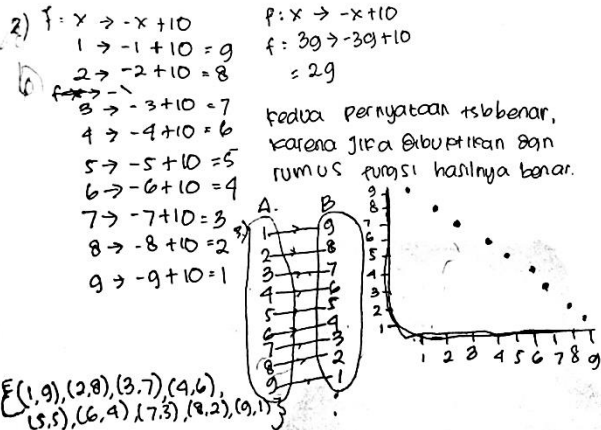 2) f : x → -x + 10
1 → -1 + 10 = 9
2 → -2 + 10 = 8
3 → -3 + 10 = 7
4 → -4 + 10 = 6
5 → -5 + 10 = 5
6 → -6 + 10 = 4
7 → -7 + 10 = 3
8 → -8 + 10 = 2
9 → -9 + 10 = 1
f : x → -x + 10
f : 39 → -39 + 10
= 29
Kedua pernyataan tsb benar,
karena jika dibuktikan dgn
rumus fungsi hasilnya benar.
A. B
1 9
2 8
3 7
4 6
5 5
6 4
7 3
8 2
9 1
9
8
7
6
5
4
3
2
1
1 2 3 4 5 6 7 8 9
{(1,9), (2,8), (3,7), (4,6),
(5,5), (6,4), (7,3), (8,2), (9,1)}